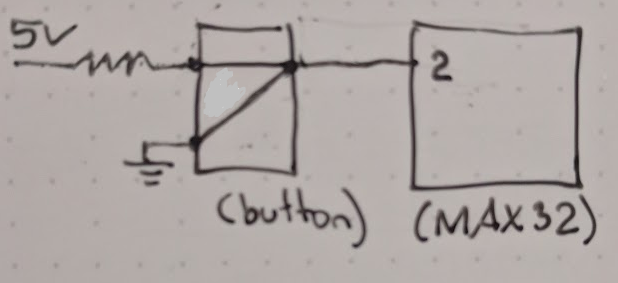 5V
2
(button)
(MAX32)